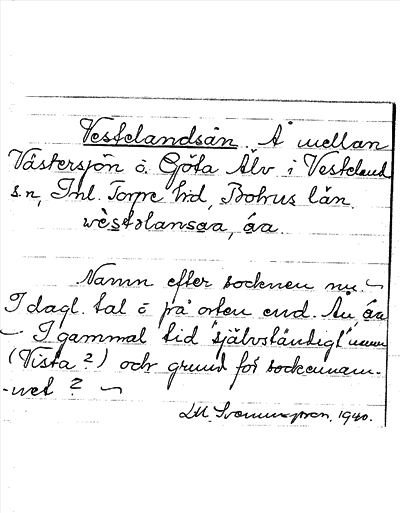 Vestelandsån. Å mellan
Västersjön o. Göta Älv i Vesteland
s.n, Inl. Torpe hrd, Bohus län.
wèstəlansaa, áa.
Namn efter socknen nu. ~
I dagl. tal o på orten end. Ån, áa
~ I gammal tid "självständigt" namn
(Vista?) och grund för sockennam-
-net? ~
1940.